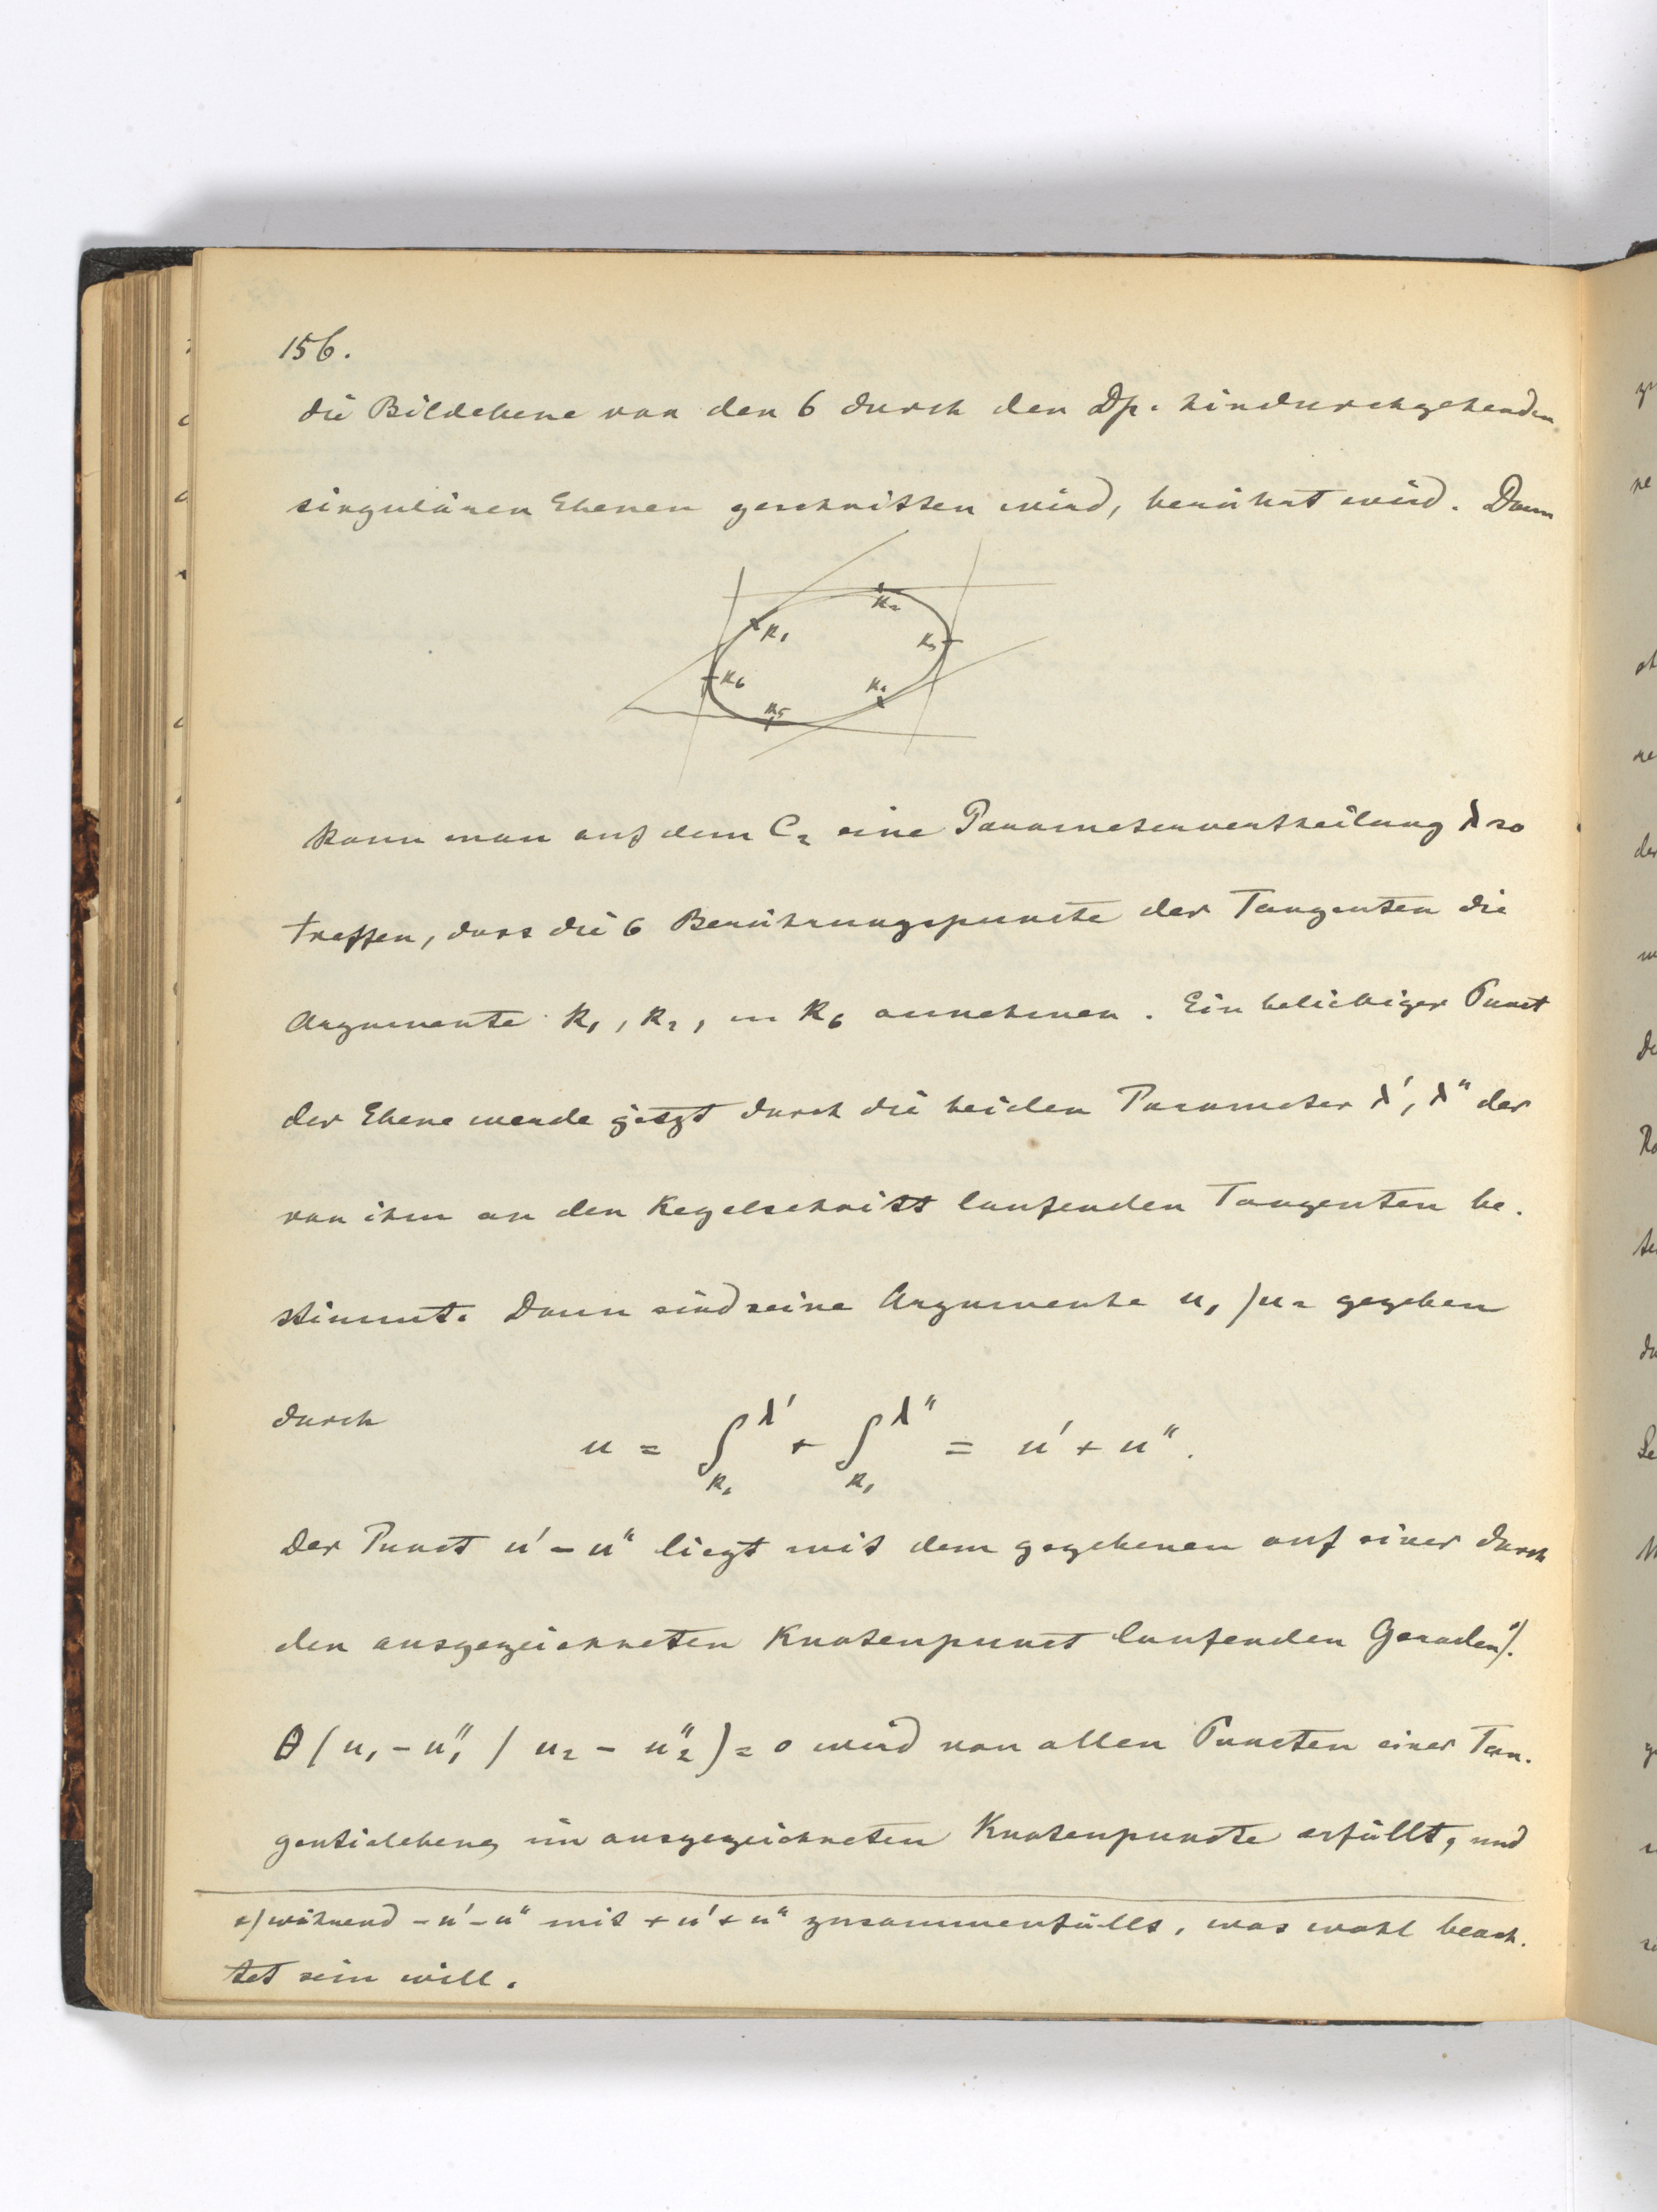 156.
die Bildebene von den 6 durch den Dp. hindurchgehenden
singulären Ebenen geschnitten wird, berührt wird. Dann
k₂
k₁
k₃
k₆
k₄
k₅
kann man auf dem C₂ eine Parametervertheilung λ so
treffen, dass die 6 Berührungspuncte der Tangenten die
Argumente k₁, k₂, … k₆ annehmen. Ein beliebiger Punct
der Ebene werde jetzt durch die beiden Parameter λ', λ'' der
von ihm an den Kegelschnitt laufenden Tangenten be-
stimmt. Dann sind seine Argumente u₁ / u₂ gegeben
durch
u = ∫_{k₁}^{λ'} + ∫_{k₁}^{λ''} = u' + u''.
Der Punct u' - u'' liegt mit dem gegebenen auf einer durch
den ausgezeichneten Knotenpunct laufenden Geraden*).
θ(u₁ - u₁'' / u₂ - u₂'') = 0 wird von allen Puncten einer Tan-
gentialebene im ausgezeichneten Knotenpuncte erfüllt, und
*) während - u' - u'' mit + u' + u'' zusammenfällt, was wohl beach-
tet sein will.